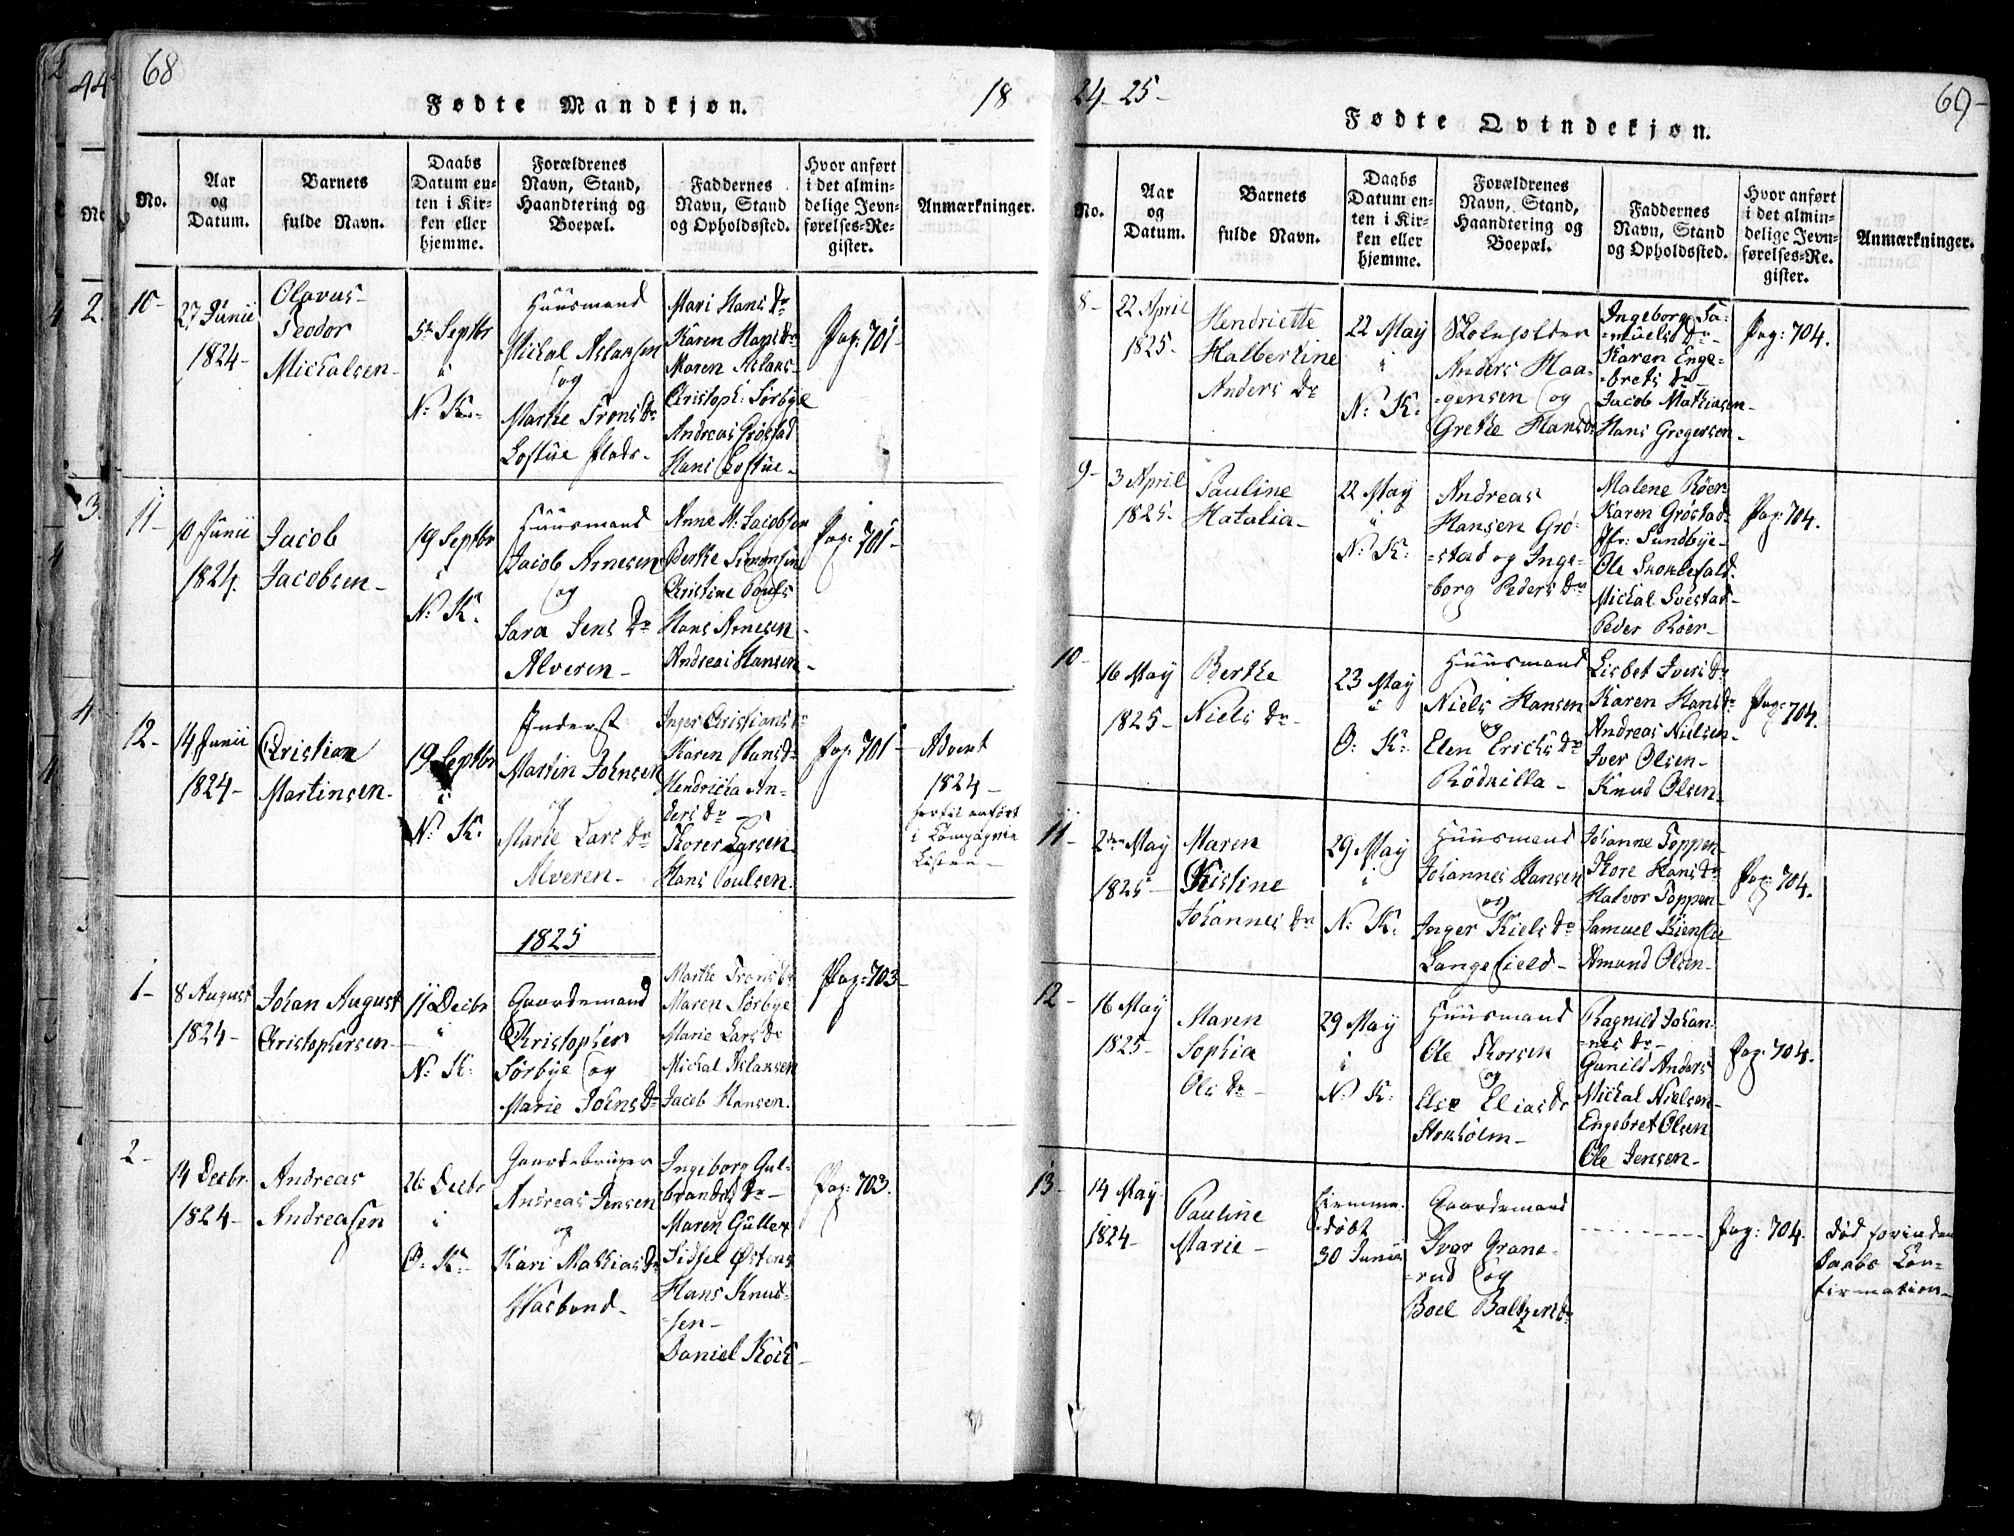 68
Fødte Mandkjøn.
18
No.
Aar
og
Datum.
Barnets
fulde Navn.
Daabs
Datum en-
ten i Kir-
ken eller
hjemme.
Forældrenes
Navn, Stand,
Haandtering og
Boepæl.
Faddernes
Navn, Stand
og Opholdssted.
Hvor anført
i det almin-
delige Jevn-
førelses-Re-
gister.
Anmærkninger.
10-
27 Junii
1824-
Olavus-
Teodor
Michalsen-
5te Septbr
i
N: K:
Huusmand
Michal Aslaksen
og
Marthe Tronsdr
Loftue Plads-
Mari Hansdr
Karen Hansdr
Maren Aslaks-
Christoph: Sørbye
Andreas Grøstad
Hans Loftue-
Pag: 701-
11-
10 Junii
1824.
Jacob
Jacobsen-
19 Septbr
i
N: K.
Huusmand
Jacob Arnesen
og
Sara Jens Dr
Alveren-
Anne M: Jacobsen
Berthe Simonsen
Christine Pouls
Hans Arnesen-
Andreas Hansen-
Pag: 701-
12-
14 Junii
1824-
Christian
Martinsen-
19 Septbr
i
N: K.
Inderst
Martin Johnsen
og
Marie Lars Dr
Alveren-
Inger Christiansdr
Karen Hansdr
Hendricha An-
ders Dr-
Thorer Larsen-
Hans Poulsen.
Pag: 701-
Advent
1824-
hertil anført
i Compagnie
Listen-
1825
1-
8 August
1824-
Johan August
Christophersen-
11 Decbr
i
N: K:
Gaardemand
Christopher
Sørbye og
Marie Johnsdr
Marthe Tronsdr
Maren Sørbye
Marie Larsdr
Michal Aslaksen
Jacob Hansen.
Pag: 703-
2-
14 Decbr.
1824-
Andreas
Andreasen
26 Decbr
i
O: K:
Gaardebruger
Andreas Jensen
og
Kari Mathiasdr
Waabond-
Ingeborg Gul-
brandsdr-
Maren Güller
Sidsel Østens
Hans Knud-
-sen-
Daniel Koch-
Pag: 703.
24-25-
69-
Fødte Qvindekjøn.
No.
Aar
og
Datum.
Barnets
fulde Navn.
Daabs
Datum en-
ten i Kir-
ken eller
hjemme.
Forældrenes
Navn, Stand,
Haandtering og
Boepæl.
Faddernes
Navn, Stand
og Opholdssted.
Hvor anført
i det almin-
delige Jevn-
førelses-Re-
gister.
Anmærkninger.
8-
22 April
1825-
Hendriette
Halbertine
Anders Dr
22 May
i
N: K:
Skoleholder
Anders Haa-
-gensen og
Grethe Hansdr
Ingeborg Sa-
-muelsdr-
Karen Enge-
-brets dr-
Jacob Mathiasen-
Hans Gregersen-
Pag: 704.
9-
3 April
1825-
Pauline
Natalia-
22 May
i
N: K:
Andreas
Hansen Grø-
-stad og Inge-
-borg Peders Dr
Malene Røer-
Karen Grøstad-
Sundbye-
Ole Skokefald.
Michal Svestad-
Peder Røer-
Pag: 704.
10-
16 May
1825-
Berthe
Niels Dr-
23 May
i
O: K:
Huusmand
Niels Hansen
og
Elen Erichsdr
Rødkilla-
Lisbet Iversdr
Karen Hansdr
Andreas Nielsen-
Iver Olsen-
Knud Olsen-
Pag: 704.
11-
2den May
1825-
Maren
Kistine
Johannes Dr
29 May
i
N: K:
Huusmand
Johannes Hansen
og
Inger Kiels Dr
Langefield-
Johanne Toppen-
Thore Hans Dr
Halvor Toppen-
Samuel Kienslie
Amund Olsen-
Pag: 704.
12-
16 May
1825-
Maren
Sophia
Ols Dr-
29 May
i
N: K:
Huusmand
Ole Thorsen
og
Else Eliasdr
Stokholm-
Ragnild Johan-
-nes dr-
Gunild Anders
Michal Nielsen-
Engebret Olsen
Ole Jensen-
Pag: 704.
13-
14 May
1824-
Pauline
Marie-
hiemme-
-døbt
30 Junii
Gaardemand
Ivar Grane-
-rud og
Boel Baltzersdr
Pag: 704.
død forinden
Daabs Con-
firmation-